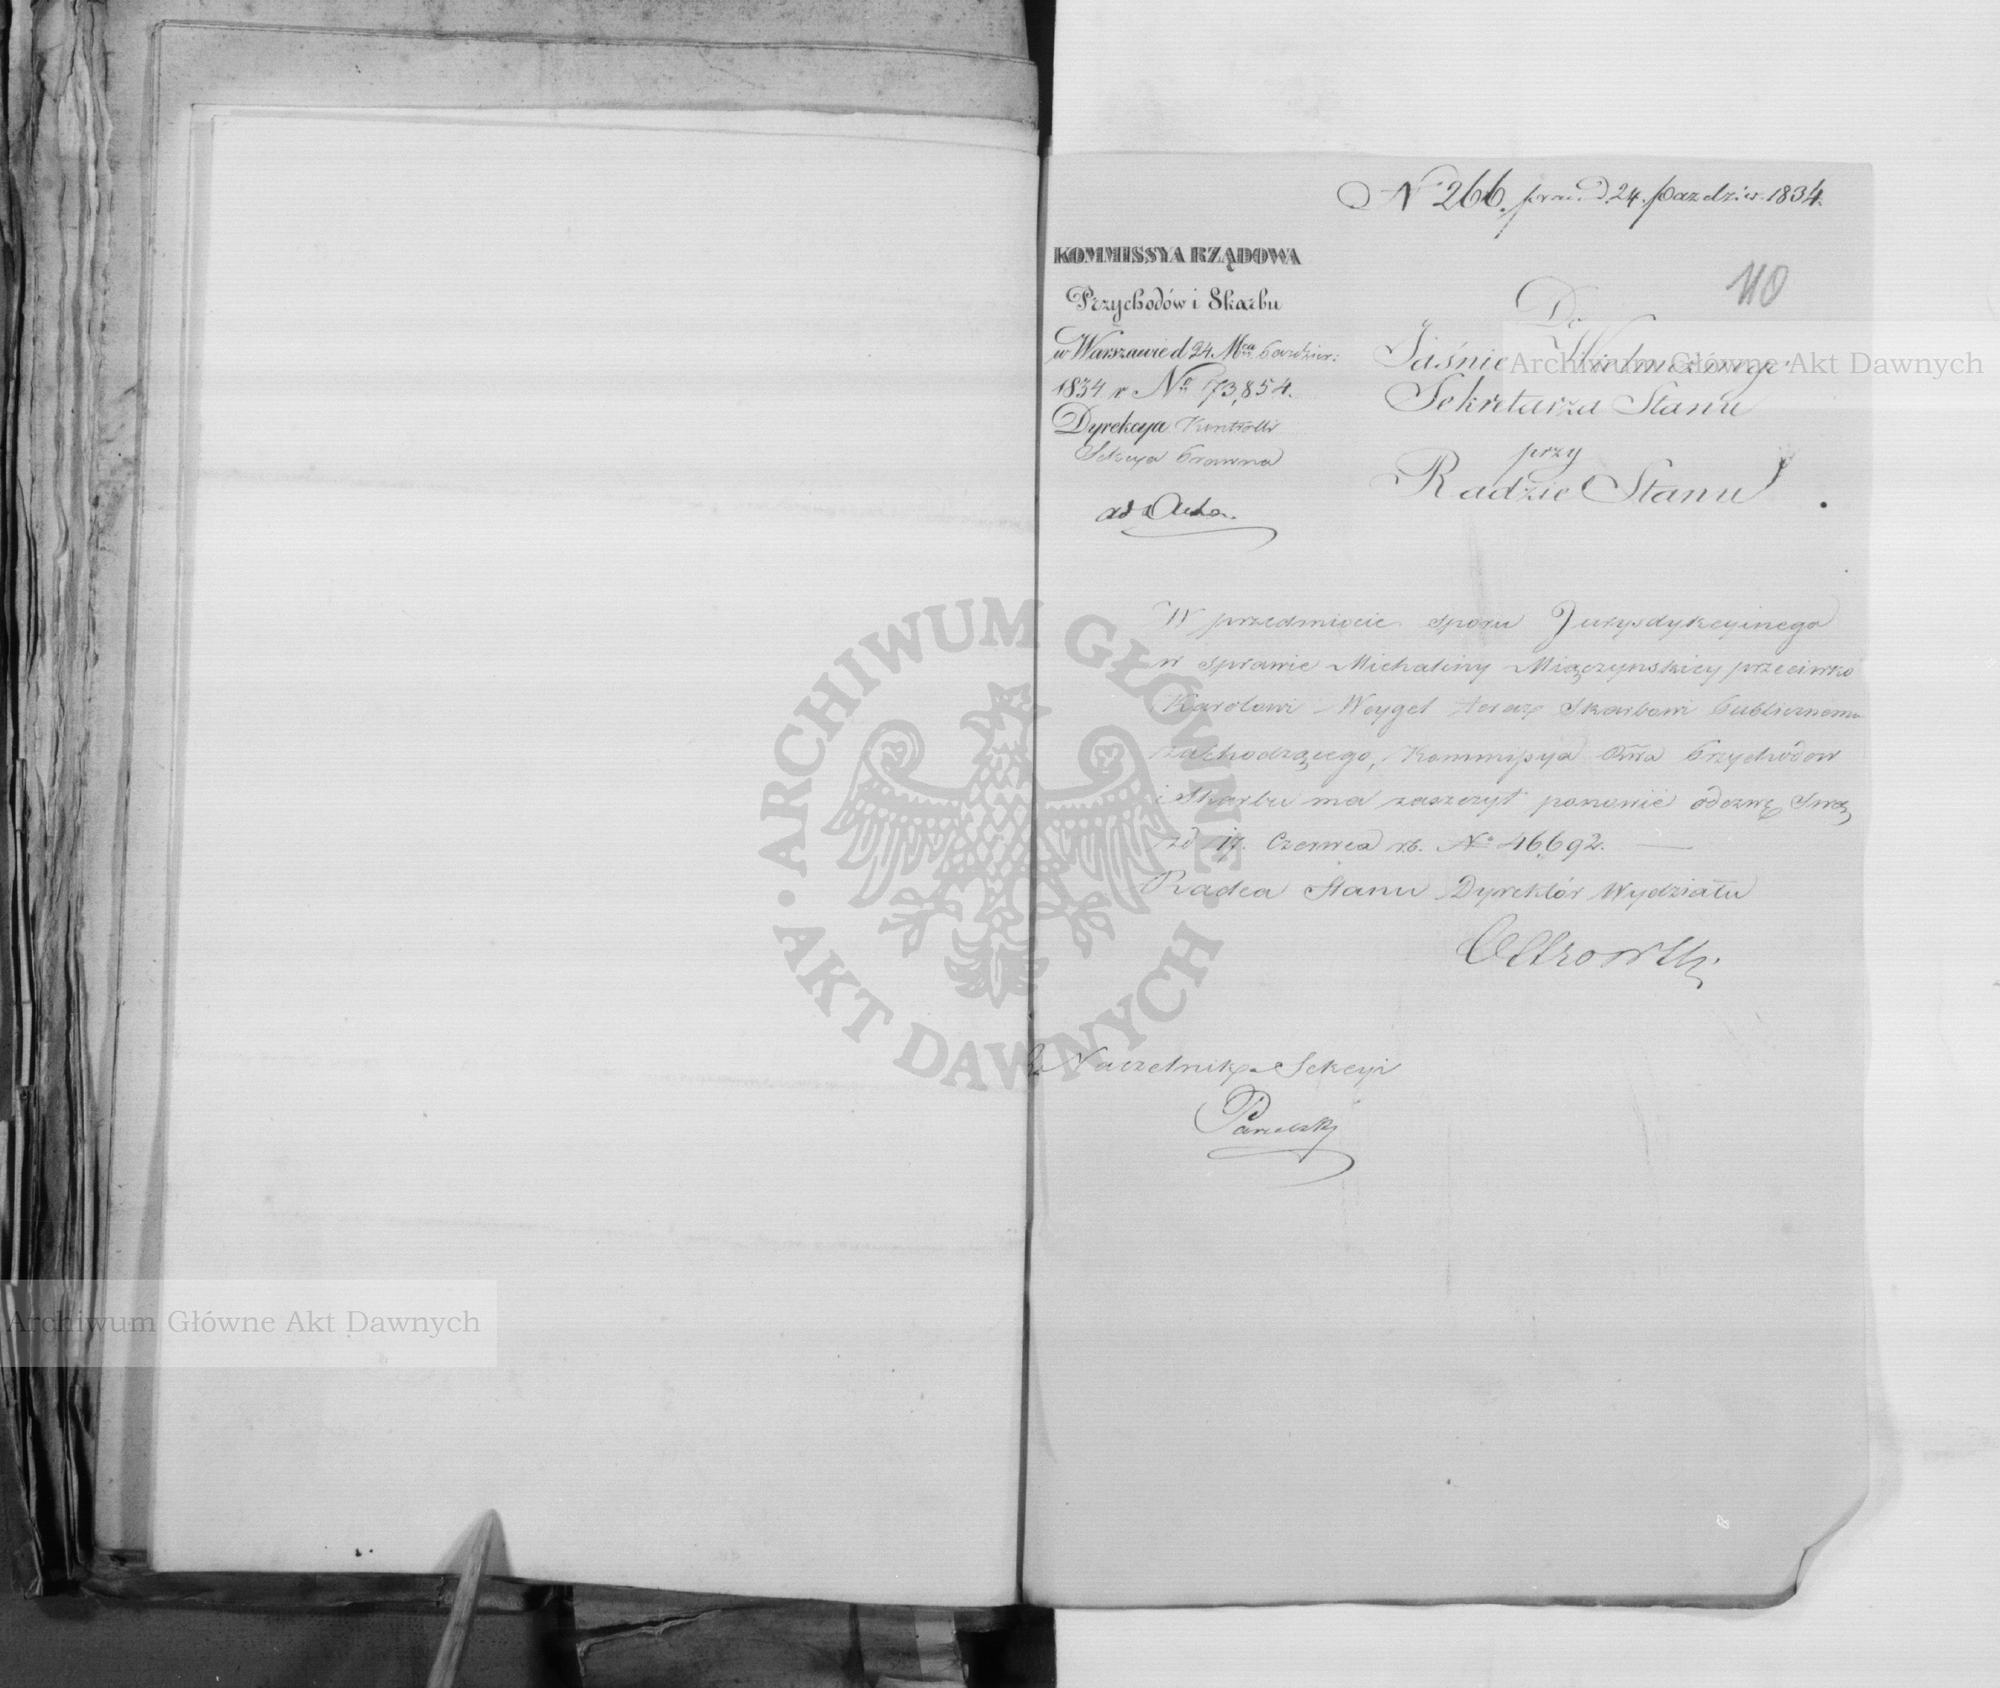 N 266. prez. D. 24. Paździer. 1834.
110
KOMMISSYA RZĄDOWA
Przychodów i Skarbu
w Warszawie d 24. Mca Paździer:
1834 r No 73,854.
Dyrekcya Kontrolli
Sekcya Prawna
ad Acta.
Do
Jaśnie Wielmożnego
Sekretarza Stanu
przy
Radzie Stanu
W przedmiocie sporu Jurysdykcyinego
w sprawie Michaliny Miączyńskiey przeciwko
Karolowi Weygel teraz Skarbowi Publicznemu
zachodzącego, Kommissya Przychodów
i Skarbu ma zaszczyt ponowić odezwę Swą
zd 17. Czerwca rb. No 46,692.
Radca Stanu Dyrektór Wydziału
Ostrowski
Naczelnika Sekcyi
ARCHIWUM GŁÓWNE
AKT DAWNYCH
Archiwum Główne Akt Dawnych
Archiwum Główne Akt Dawnych